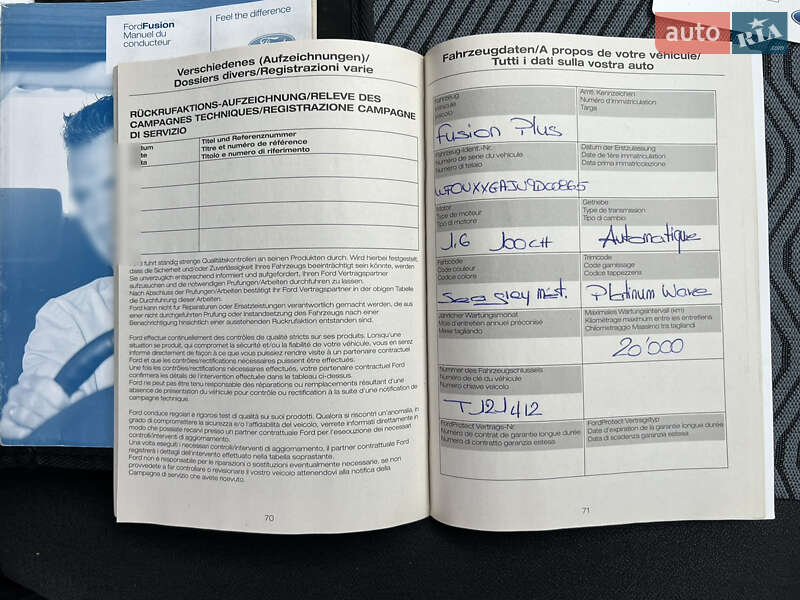 FordFusion
Manuel du
conducteur
Feel the difference
Ford
auto RIA
.com
Verschiedenes (Aufzeichnungen)/
Dossiers divers/Registrazioni varie
RÜCKRUFAKTIONS-AUFZEICHNUNG/RELEVE DES
CAMPAGNES TECHNIQUES/REGISTRAZIONE CAMPAGNE
DI SERVIZIO
tum
te
ta
Titel und Referenznummer
Titre et numéro de référence
Titolo e numero di riferimento
führt ständig strenge Qualitätskontrollen an seinen Produkten durch. Wird hierbei festgestellt,
dass die Sicherheit und/oder Zuverlässigkeit Ihres Fahrzeugs beeinträchtigt sein könnte, werden
Sie unverzüglich entsprechend informiert und aufgefordert, Ihren Ford Vertragspartner
aufzusuchen und die notwendigen Prüfungen/Arbeiten durchführen zu lassen.
Nach Abschluss der Prüfungen/Arbeiten bestätigt Ihr Ford Vertragspartner in der obigen Tabelle
die Durchführung dieser Arbeiten.
Ford kann nicht für Reparaturen oder Ersatzleistungen verantwortlich gemacht werden, die aus
einer nicht durchgeführten Prüfung oder Instandsetzung des Fahrzeugs nach einer
Benachrichtigung hinsichtlich einer ausstehenden Rückrufaktion entstanden sind.
Ford effectue continuellement des contrôles de qualité stricts sur ses produits. Lorsqu'une
situation se produit, qui compromet la sécurité et/ou la fiabilité de votre véhicule, vous en serez
informé directement de façon à ce que vous puissiez rendre visite à un partenaire contractuel
Ford et que les contrôles/rectifications nécessaires puissent être effectués.
Une fois les contrôles/rectifications nécessaires effectués, votre partenaire contractuel Ford
confirmera les détails de l'intervention effectuée dans le tableau ci-dessus.
Ford ne peut pas être tenu responsable des réparations ou remplacements résultant d'une
absence de présentation du véhicule pour contrôle ou rectification à la suite d'une notification de
campagne technique.
Ford conduce regolari e rigorosi test di qualità sui suoi prodotti. Qualora si riscontri un'anomalia, in
grado di compromettere la sicurezza e/o l'affidabilità del veicolo, verrete informati direttamente in
modo che possiate recarvi presso un partner contrattuale Ford per l'esecuzione dei necessari
controlli/interventi di aggiornamento.
Una volta eseguiti i necessari controlli/interventi di aggiornamento, il partner contrattuale Ford
registrerà i dettagli dell'intervento effettuato nella tabella soprastante.
Ford non è responsabile per le riparazioni o sostituzioni eventualmente necessarie, se non
provvedete a far controllare o revisionare il vostro veicolo attenendovi alla notifica della
Campagna di servizio che avete ricevuto.
70
Fahrzeugdaten/A propos de votre véhicule/
Tutti i dati sulla vostra auto
Fahrzeug
Véhicule
Veicolo
Fusion Plus
Amtl. Kennzeichen
Numéro d'immatriculation
Targa
Fahrzeug-Ident.-Nr.
Numéro de série du véhicule
Numero di telaio
WF0UXXGAJU9D00865
Datum der Erstzulassung
Date de 1ère immatriculation
Data prima immatricolazione
Motor
Type de moteur
Tipo di motore
1.6 100 CH
Getriebe
Type de transmission
Tipo di cambio
Automatique
Farbcode
Code couleur
Codice colore
Sea grey mét.
Trimcode
Code garnissage
Codice tappezzeria
Platinum Wave
Jährlicher Wartungsmonat
Mois d'entretien annuel préconisé
Mese tagliando
Maximales Wartungsintervall (km)
Kilométrage maximum entre les entretiens
Chilometraggio Massimo tra tagliandi
20'000
Nummer des Fahrzeugschlüssels
Numéro de clé du véhicule
Numero chiave veicolo
T 121412
FordProtect Vertrags-Nr.
Numéro de contrat de garantie longue durée
Numero di contratto garanzia estesa
FordProtect Vertragstyp
Date d'expiration de la garantie longue durée
Data di scadenza garanzia estesa
71